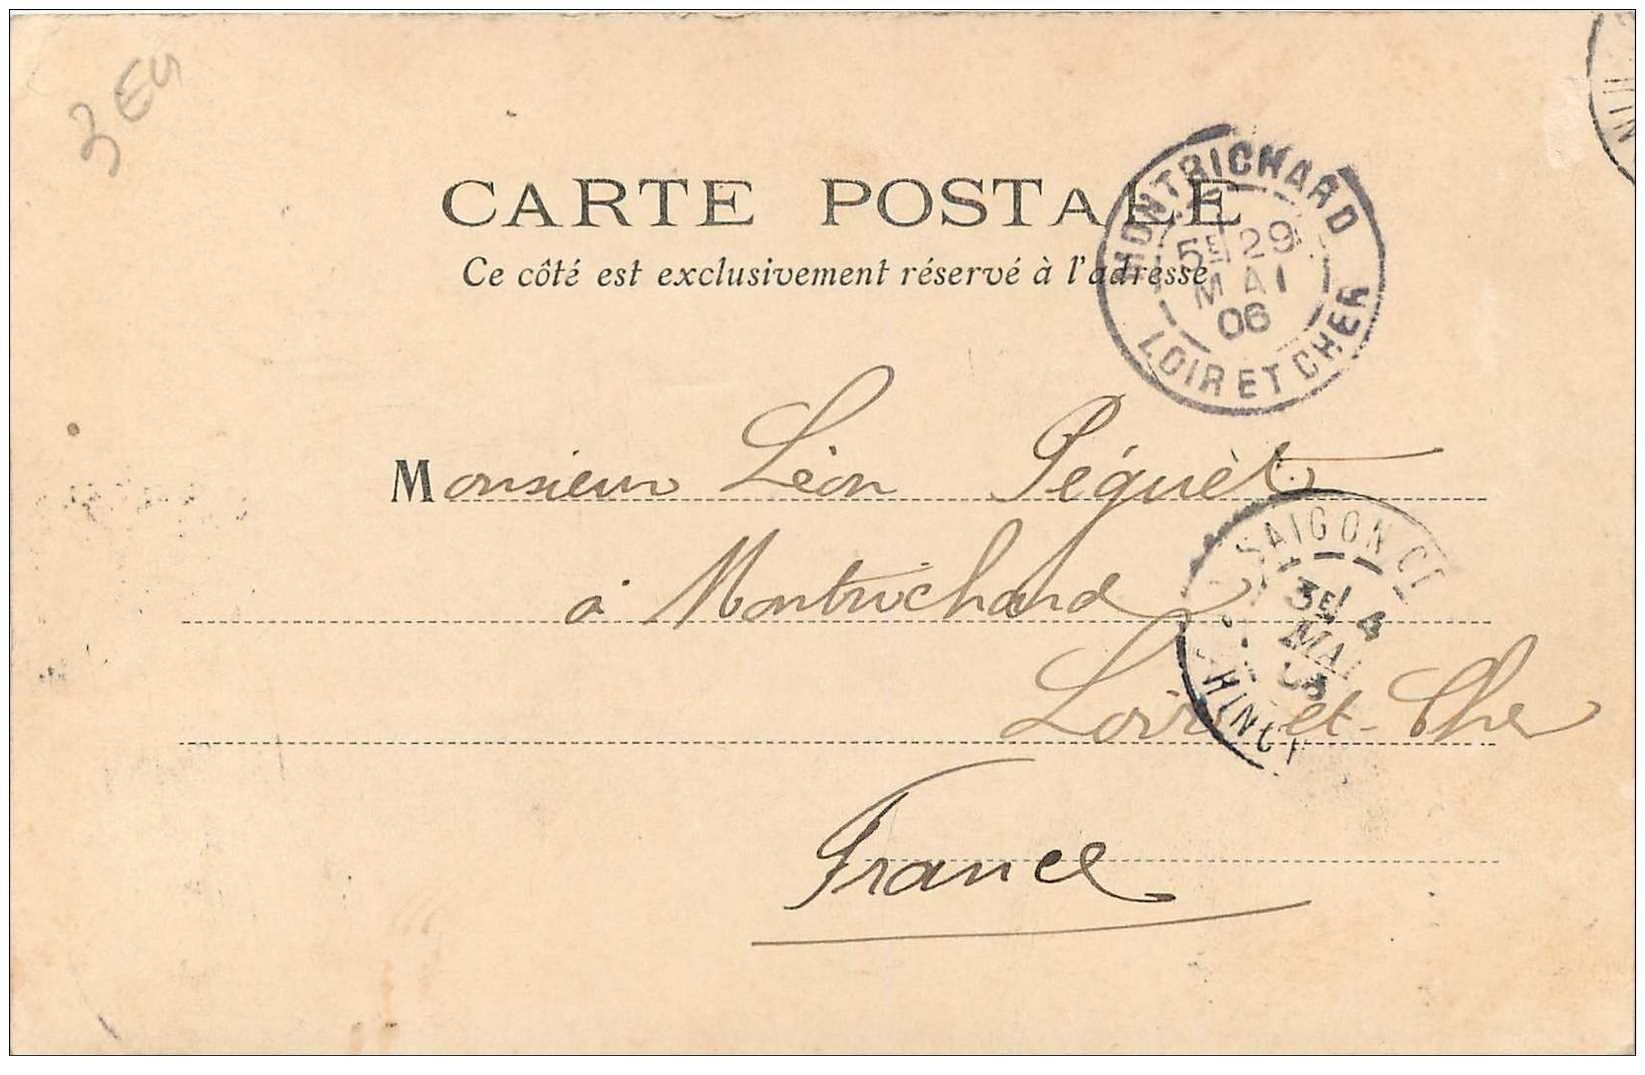 3 EU
CARTE POSTALE
Ce côté est exclusivement réservé à l'adresse
MONTRICHARD
5E 29
MAI
06
LOIR ET CHER
Monsieur Léon Péguèt
SAIGON
3E 4
MAI
à Montrichard
Loir et-Cher
France